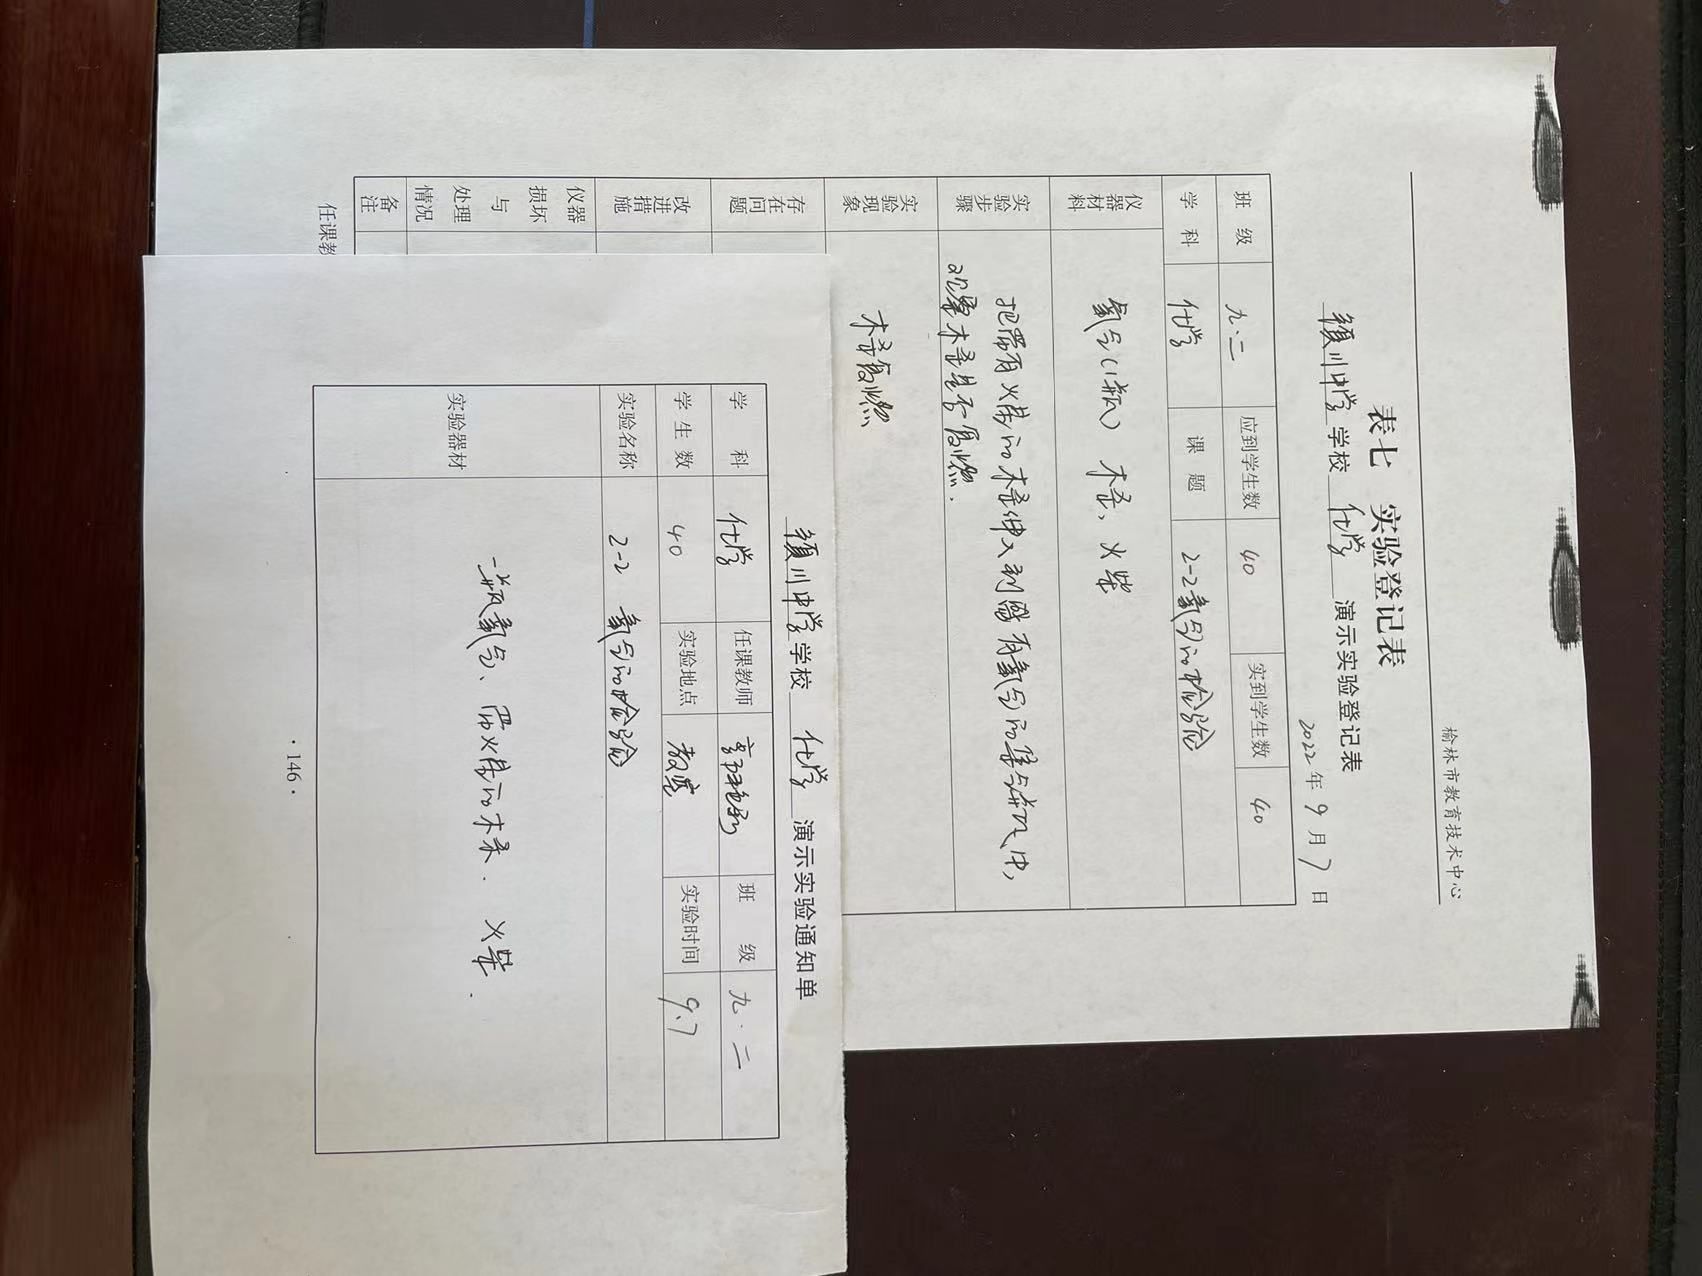 榆林市教育技术中心
表七 实验登记表
镇川中学 学校 化学 演示实验登记表
2022年9月7日
班级 九.二 应到学生数 40 实到学生数 40
学科 化学 课题 2-2 氧气的检验
仪器材料 氧气(1瓶) 木条、火柴
实验步骤 把带有火星的木条伸入到盛有氧气的集气瓶中,
观察木条是否复燃.
实验现象 木条复燃
存在问题
改进措施
仪器损坏与处理情况
备注
任课教
镇川中学 学校 化学 演示实验通知单
学科 化学 任课教师 班级 九.二
学生数 40 实验地点 教室 实验时间 9.7
实验名称 2-2 氧气的检验
实验器材 一瓶氧气、带火星的木条. 火柴.
·146·